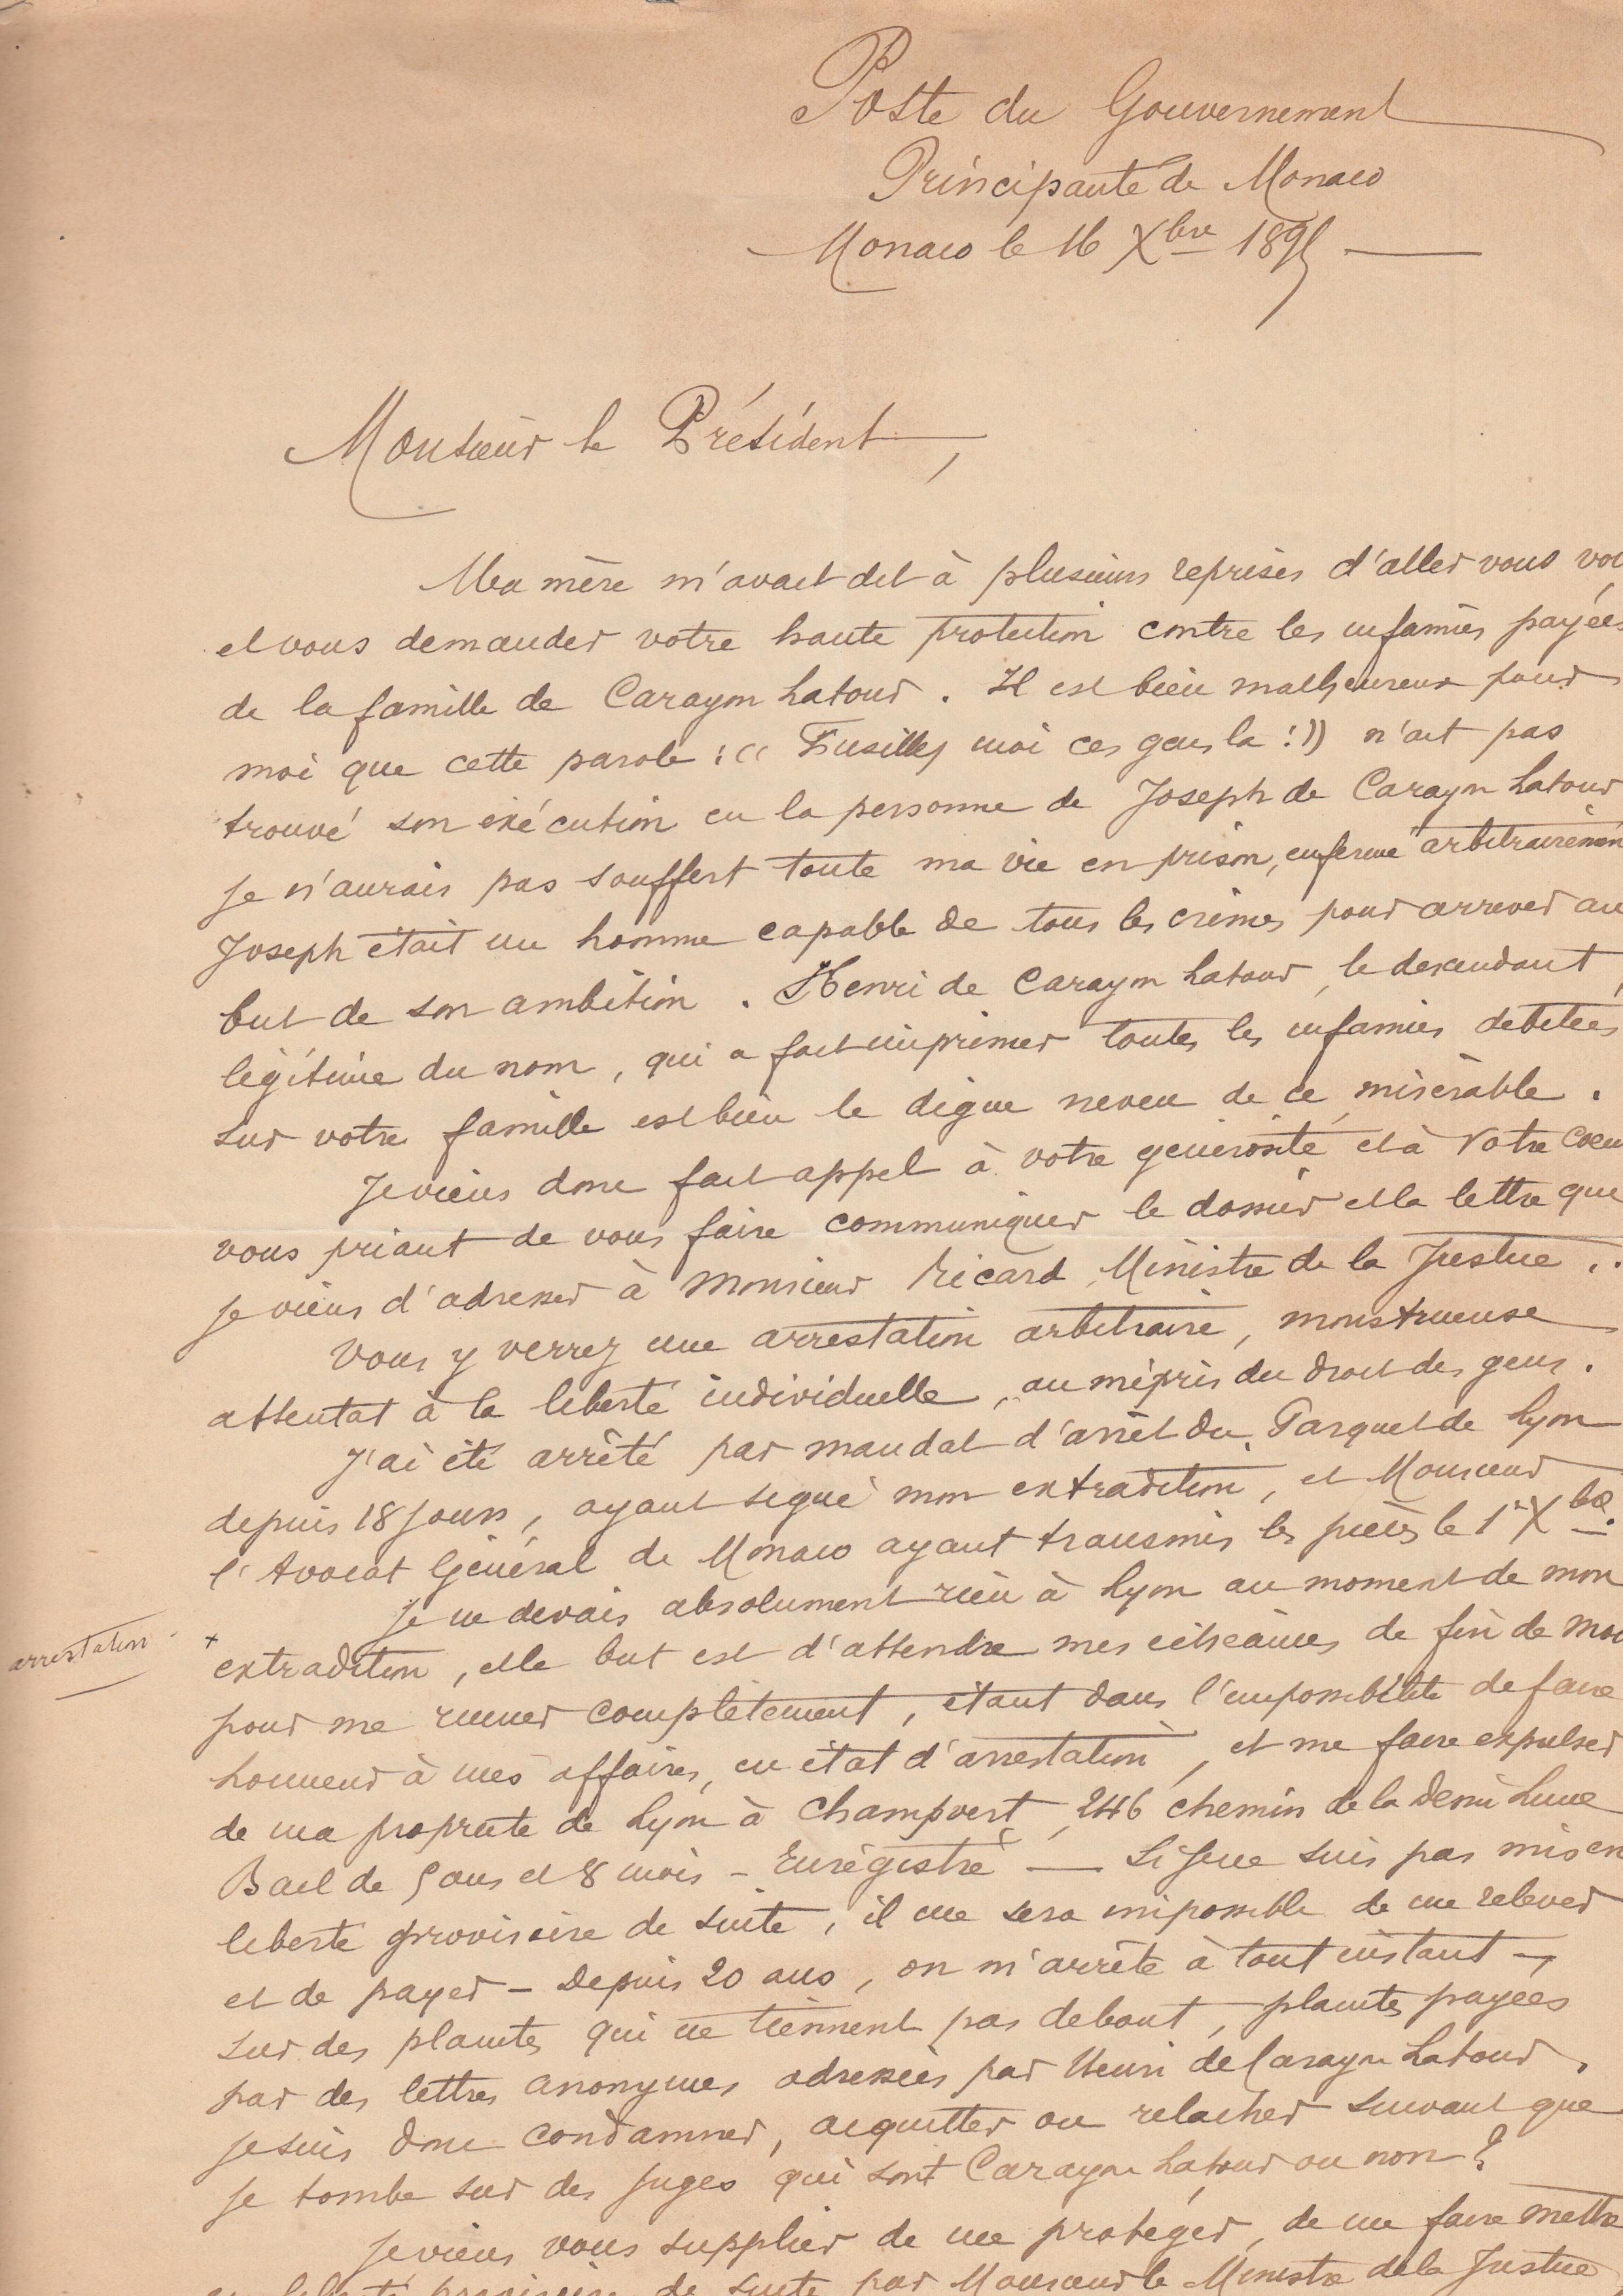 Poste du Gouvernement
Principauté de Monaco
Monaco le 16 Xbre 1895
Monsieur le Président,
Ma mère m'avait dit à plusieurs reprises d'aller vous voi
et vous demander votre haute protection contre les infamies payées
de la famille de Carayon Latour. Il est bien malheureux pour
moi que cette parole : « Fusillez moi ces gens la ! » n'ait pas
trouvé son exécution en la personne de Joseph de Carayon Latour
je n'aurais pas souffert toute ma vie en prison, enfermé arbitrairement
Joseph était un homme capable de tous les crimes pour arriver au
but de son ambition. Henri de Carayon Latour, le descendant
légitime du nom, qui a fait imprimer toutes les infamies débitées
sur votre famille est bien le digne neveu de ce misérable.
Je viens donc fait appel à votre générosité et à votre Coeur
vous priant de vous faire communiquer le dossier et la lettre que
je viens d'adresser à Monsieur Ricard, Ministre de la Justice.
Vous y verrez une arrestation arbitraire, monstrueuse
attentat à la liberté individuelle, au mépris du droit des gens.
J'ai été arrêté par mandat d'arrêt du Parquet de Lyon
depuis 18 jours, ayant signé mon extradition, et Monsieur
l'Avocat Général de Monaco ayant transmis les pièces le 1er Xbre.
Je ne devais absolument rien à Lyon au moment de mon
arrestation
+ extradition, et le but est d'attendre mes échéances de fin de moi
pour me ruiner complètement, étant dans l'impossibilité de faire
honneur à mes affaires, en état d'arrestation, et me faire expulser
de ma propriété de Lyon à Champvert, 246 chemin de la Demi Lune
Bail de 5 ans et 8 mois - Enrégistré — Si je ne suis pas mis en
liberté provisoire de suite, il me sera impossible de me relever
et de payer - Depuis 20 ans, on m'arrête à tout instant -
sur des plaintes qui ne tiennent pas debout, plaintes payées
par des lettres anonymes adressées par Henri de Carayon Latour.
Je suis donc condamner, acquitter ou relacher suivant que
je tombe sur des juges qui sont Carayon Latour ou non ?
Je viens vous supplier de me protéger, de me faire mettre
en liberté provisoire de suite par Monsieur le Ministre de la Justice